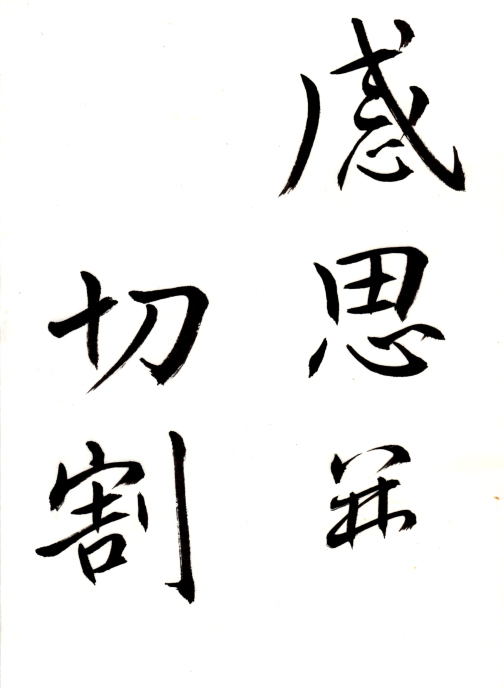 感思并
切割